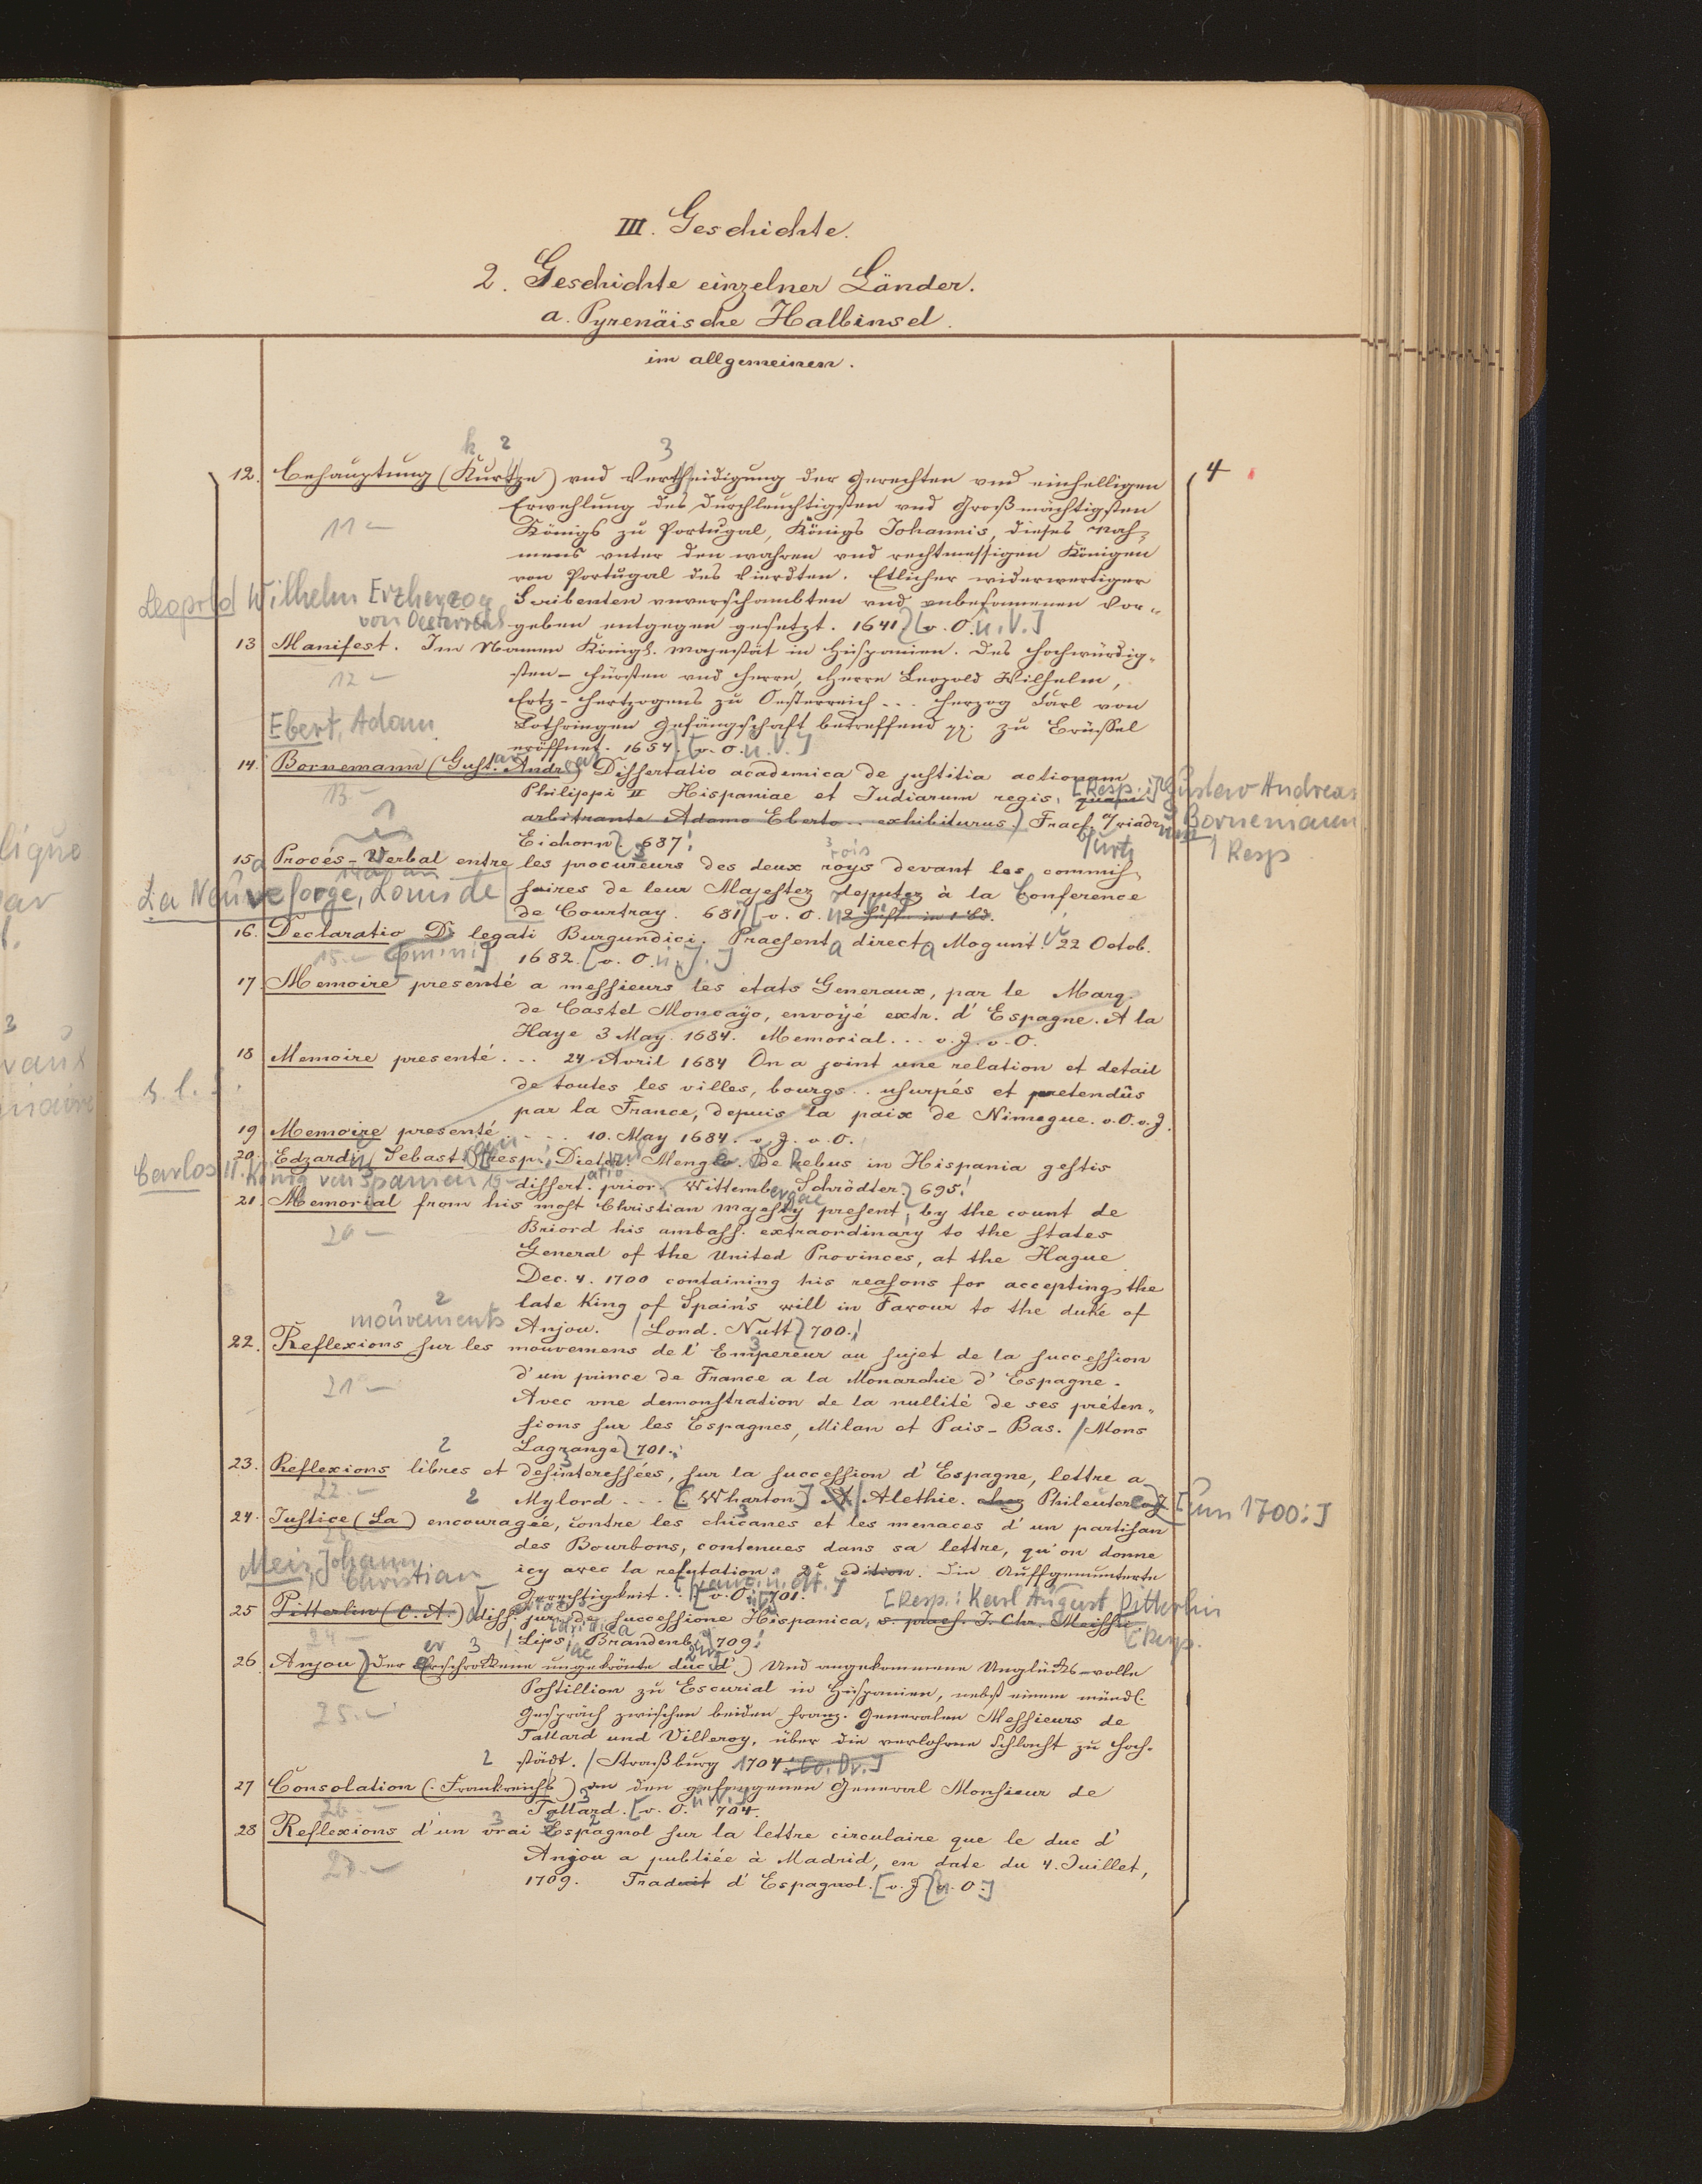 III. Geschichte.
2. Geschichte einzelner Länder.
a. Pyrenäische Halbinsel.
im allgemeinen.
4
k 2 3
12. Behauptung (Kurtze) vnd Vertheidigung der Gerechten vnd einhelligen
Erwehlung des Durchleuchtigsten vnd Großmächtigsten
11
Königs zu Portugal, Königs Johannis, dieses Nah-
mens vnter den wahren vnd rechtmessigen Königen
von Portugal des Vierdten. Etlicher widerwertiger
Leopold Wilhelm Erzherzog
von Oesterreich
Scribenten vnverschambten vnd vnbesonnenen Vor-
geben entgegen gesetzt. 1641. [v. O. u. V.]
13 Manifest. Im Namen Königl. Majestät in Hispanien. Des Hochwürdig-
12
sten - Fürsten vnd Herrn, Herrn Leopold Wilhelm,
Ertz-Hertzogens zu Oesterreich ... Herzog Carl von
Ebert, Adam
Lothringen Gefängschaft betreffend zu Brüssel
eröffnet. 1654. [v. O. u. V.]
14. Bornemann (Gust. Andr.) Dissertatio academica de justitia actionum
13.
Philippi II Hispaniae et Indiarum regis, [Resp.: Gustav Andreas
Bornemann
1 Resp
arbitrante Adamo Eberto .. exhibiturus.) Fracf. /Viadr
Eichorn. 687.
15 a Procés-Verbal entre les procureurs des deux roys devant les commis-
rois
La Neuveforge, Louis de
saires de leur Majestez deputez à la Conference
de Courtray. 681 [v. O. 2 Hift. in 1 Bd.
16. Declaratio D. legati Burgundici. Praesenta directa Mogunt. 22 Octob.
15. [omini]
1682. [v. O. u. J.]
17. Memoire presenté a messieurs les etats Generaux, par le Marq.
de Castel Moncayo, envoÿé extr. d'Espagne. A la
Haye 3 May. 1684. Memorial... v. J. v. O.
18 Memoire presenté ... 24 Avril 1684 On a joint une relation et detail
de toutes les villes, bourgs .. usurpés et pretendûs
s. l.
par la France, depuis la paix de Nimegue. v. O. v. J.
19 Memoire presenté ... 10. May 1684. v. J. v. O.
20. Edzardi, Sebast. Resp. Dieter. De Rebus in Hispania gestis
Carlos II. König von Spanien 19
dissert. prior. Wittemb. Schrödter. 695.
21. Memorial from his most Christian majesty present, by the count de
20
Briord his ambass. extraordinary to the states
General of the United Provinces, at the Hague
Dec. 4. 1700 containing his reasons for accepting the
late King of Spain's will in Favour to the duke of
mouvements
Anjou. /Lond. Nutt 700.
22. Reflexions sur les mouvemens de l'Empereur au sujet de la succession
21
d'un prince de France a la Monarchie d'Espagne.
Avec une demonstration de la nullité de ses préten-
sions sur les Espagnes, Milan et Pais-Bas. /Mons
Lagrange 701.
23. Reflexions libres et desinteressées, sur la succession d'Espagne, lettre a
22.
Mylord ... [Wharton] Alethie. chez Phileuter [um 1700.]
24. Justice (La) encouragée, contre les chicanes et les menaces d'un partisan
des Bourbons, contenues dans sa lettre, qu'on donne
Meis, Johann
Christian
icy avec la refutation. 2e edition. Die Auffgemunterte
Gerechtigkeit ... [v. O. 701.
[Resp.: Karl August Pitterlin
25 Pitterlin (C. A.) diss. jur. de successione Hispanica, s. praes. J. Chr. Meissio.
24
Lips. Brandenb. 709.
26. Anjou (Der Erschrockene ungekrönte duc d') Und angekommene Unglücks-volle
25.
Postillion zu Escurial in Hispanien, nebst einem mündl.
Gespräch zwischen beiden franz. Generalen Messieurs de
Tallard und Villeroy, über die verlohrne Schlacht zu Hoch-
städt. /Straßburg 1704
27 Consolation (: Frankreichs) an den gefangenen General Monsieur de
26.
Tallard. [v. O. 704.
28 Reflexions d'un vrai Espagnol sur la lettre circulaire que le duc d'
27.
Anjou a publiée à Madrid, en date du 4. Juillet,
1709. Traduit d'Espagnol. [v. J. v. O.]